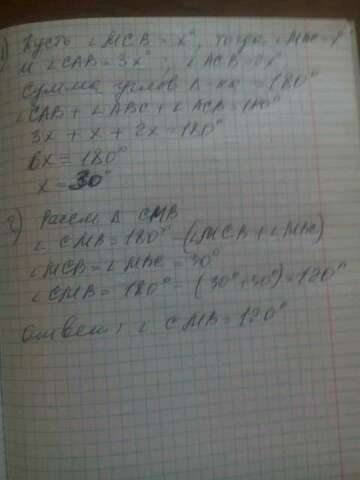 1) Пусть ∠MCB = x°, тогда ∠MBC =
и ∠CAB = 3x°; ∠ACB = 2x°
Сумма углов Δ-ка = 180°
∠CAB + ∠ABC + ∠ACB = 180°
3x + x + 2x = 180°
6x = 180°
x = 30°
2) Рассм. Δ CMB
∠CMB = 180° - (∠MCB + ∠MBC)
∠MCB = ∠MBC = 30°
∠CMB = 180° - (30° + 30°) = 120°
Ответ: ∠CMB = 120°